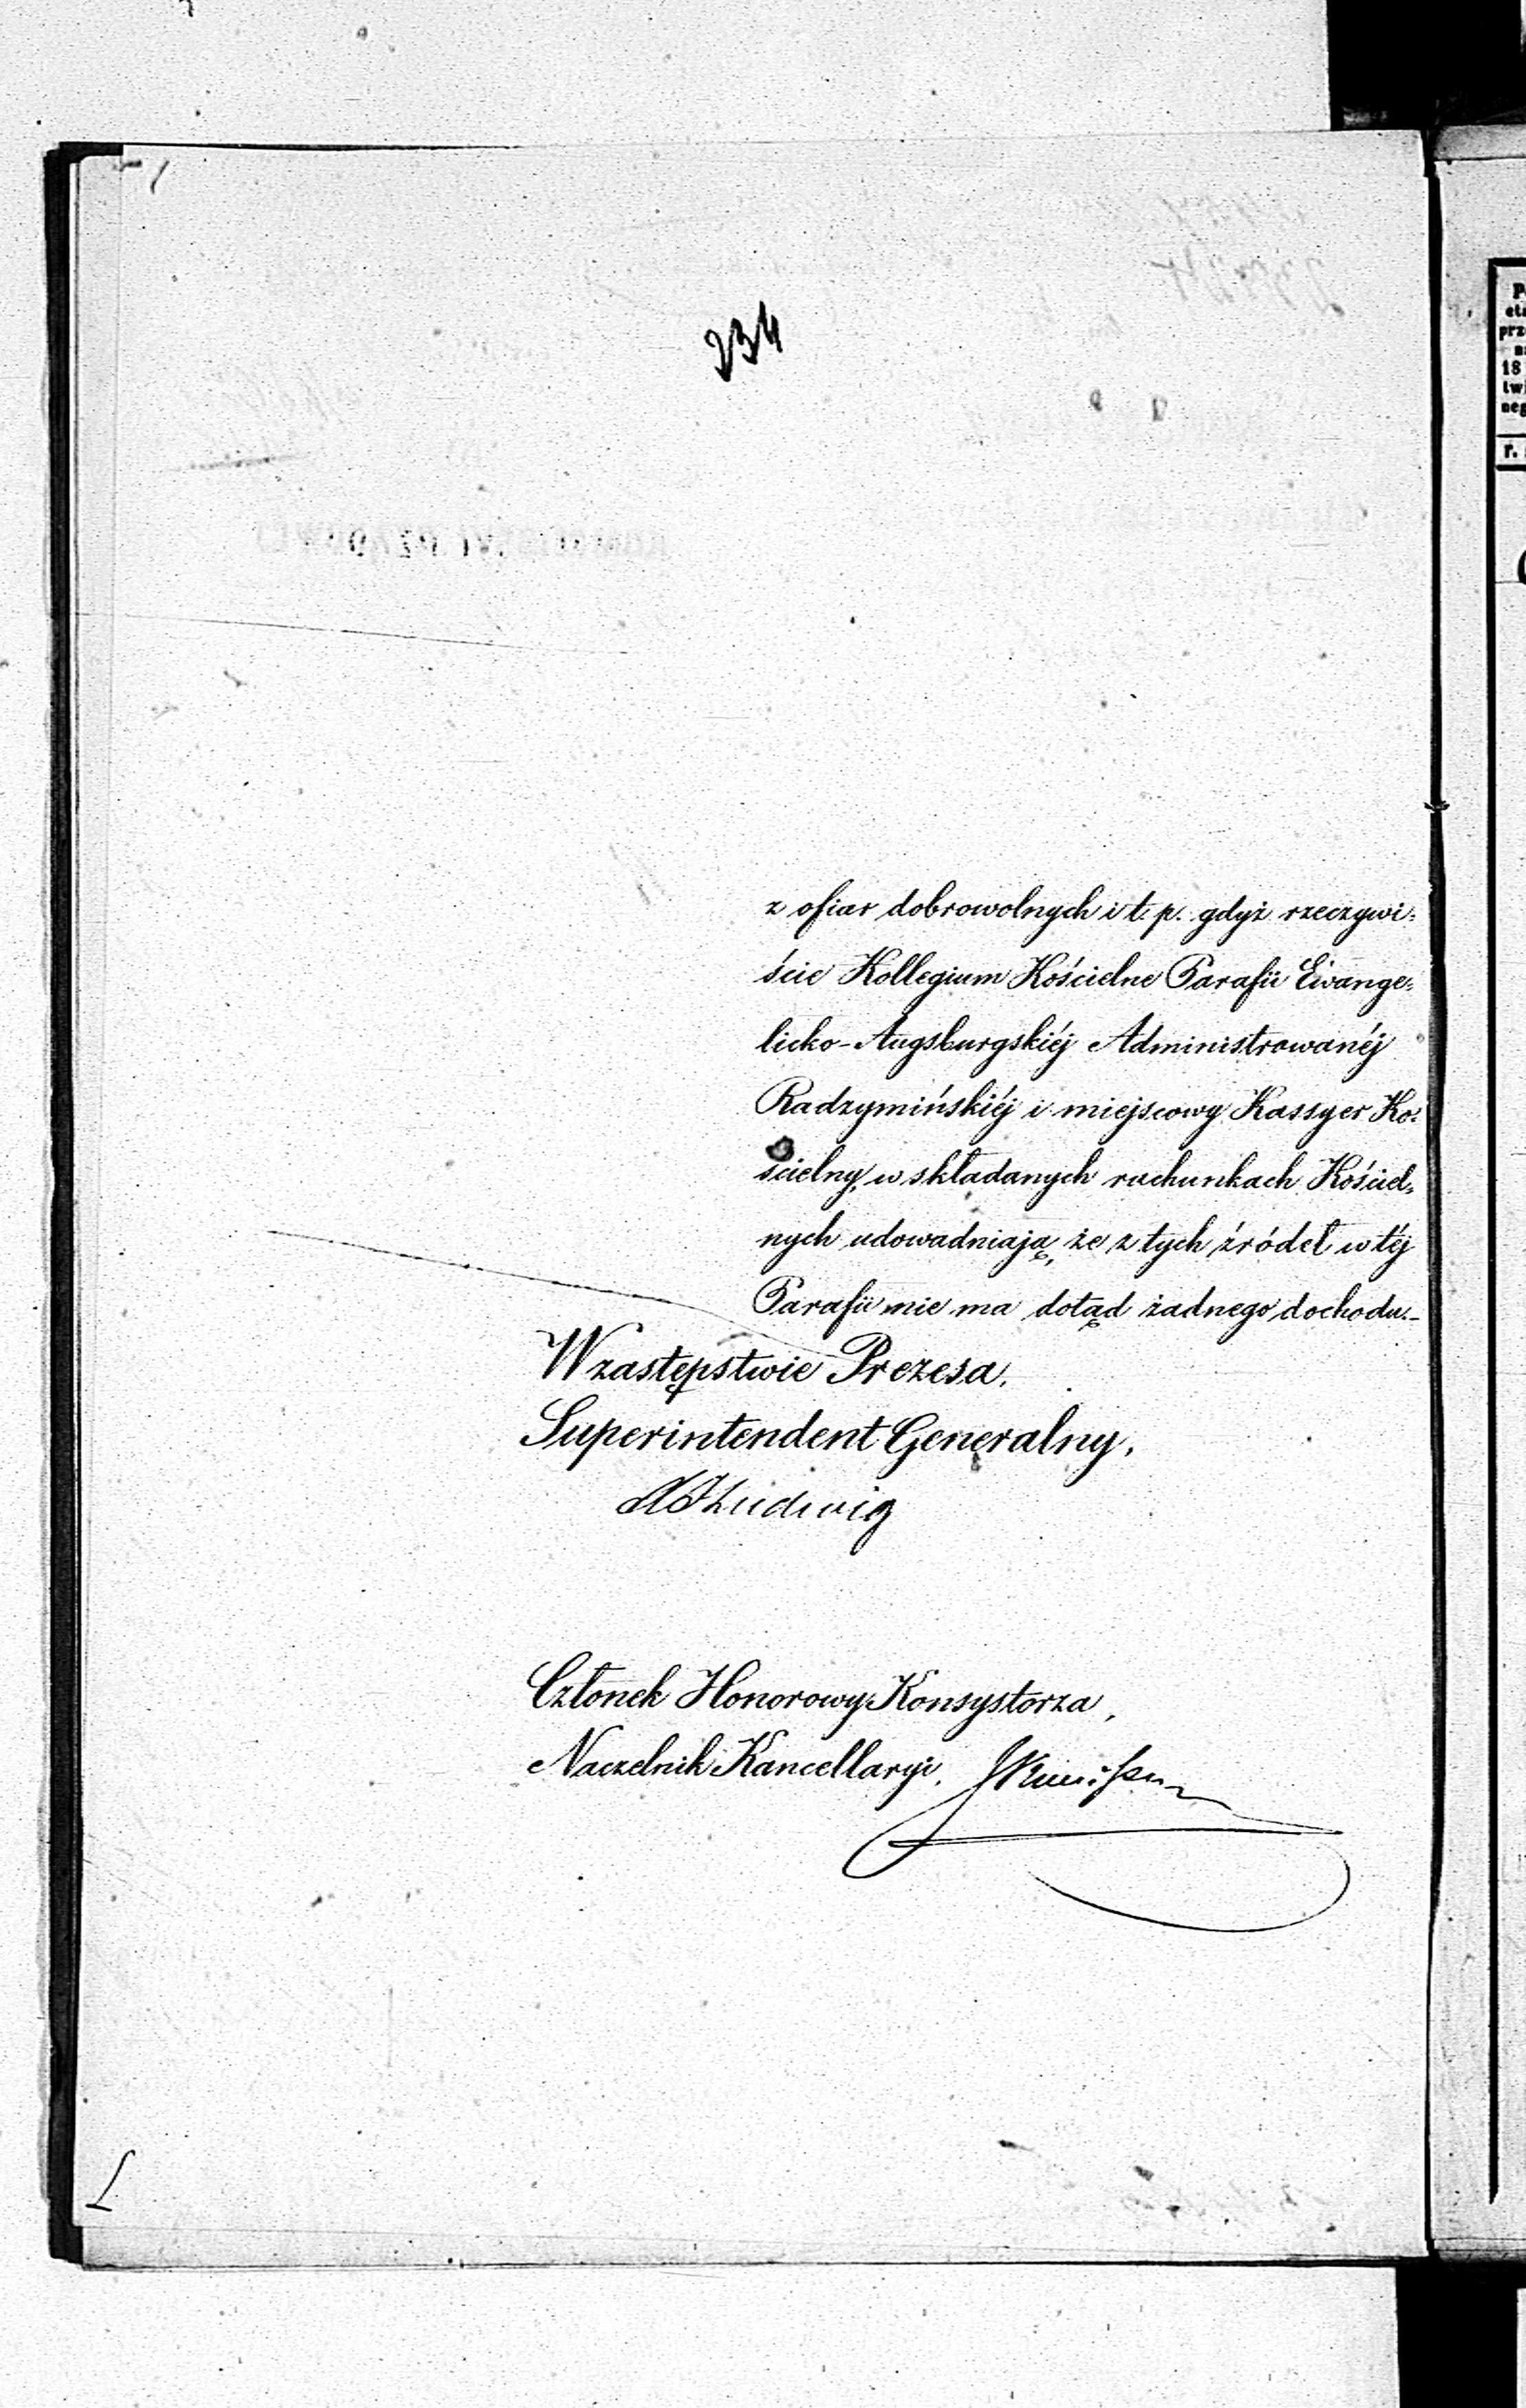 234
z ofiar dobrowolnych i t. p. gdyż rzeczywi-
ście Kollegium Kościelne Parafii Ewange-
licko-Augsburgskiéj Administrowanéj
Radzymińskiéj i miejscowy Kassyer Ko-
ścielny, w składanych rachunkach Kościel-
nych udowadniają, że z tych źródeł w téj
Parafii nie ma dotąd żadnego dochodu.-
W zastępstwie Prezesa,
Superintendent Generalny,
Ludwig
Członek Honorowy Konsystorza,
Naczelnik Kancellaryi,